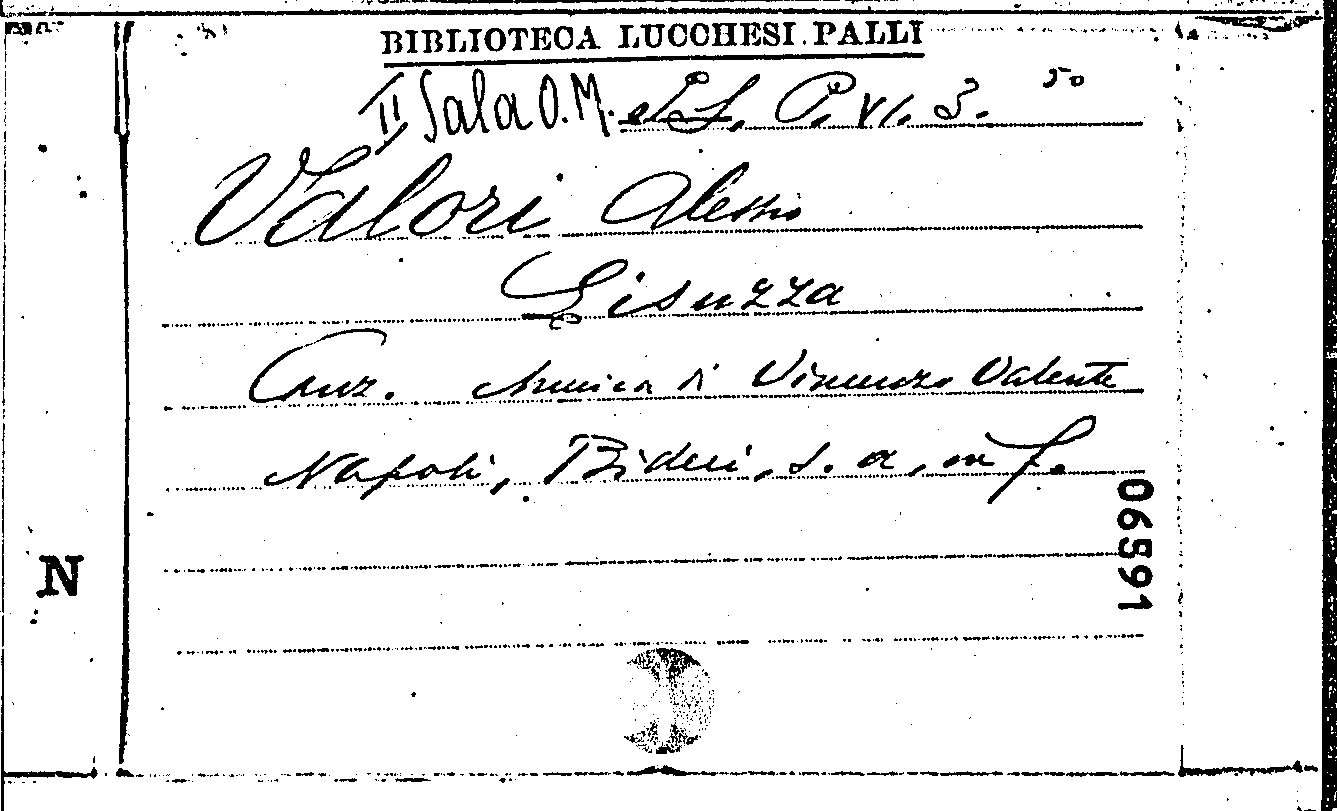 BIBLIOTECA LUCCHESI PALLI
II Sala O.M. P. VI. 3. 50
Valori Alessio
Lisuzza
Canz. Musica di Vincenzo Valente
Napoli, Bideri, s. a., in f.
06591
N